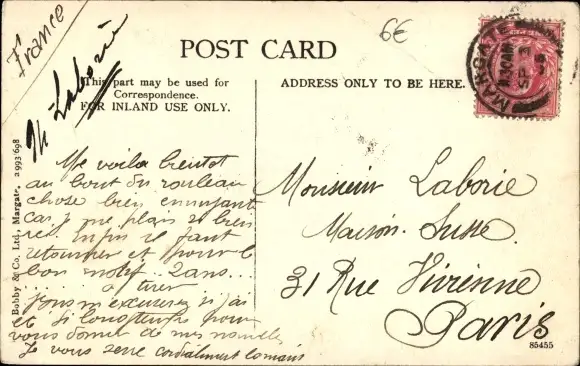 France
M. Laborie
6€
POST CARD
This part may be used for
Correspondence.
FOR INLAND USE ONLY.
ADDRESS ONLY TO BE HERE.
MARGATE
SP 3
Bobby & Co. Ltd., Margate. 2993/698
Me voila bientot
au bout du rouleau
chose bien ennuyant
car je me plais si bien
ici. Enfin il faut
retourner et pour le
bon motif.. 2 ans...
...... à tirer
vous m'excuserez si j'ai
été si longtemps pour
vous donner de mes nouvelles
Je vous serre cordialement la main
Monsieur Laborie
Maison Susse
31 Rue Vivienne
Paris
85455